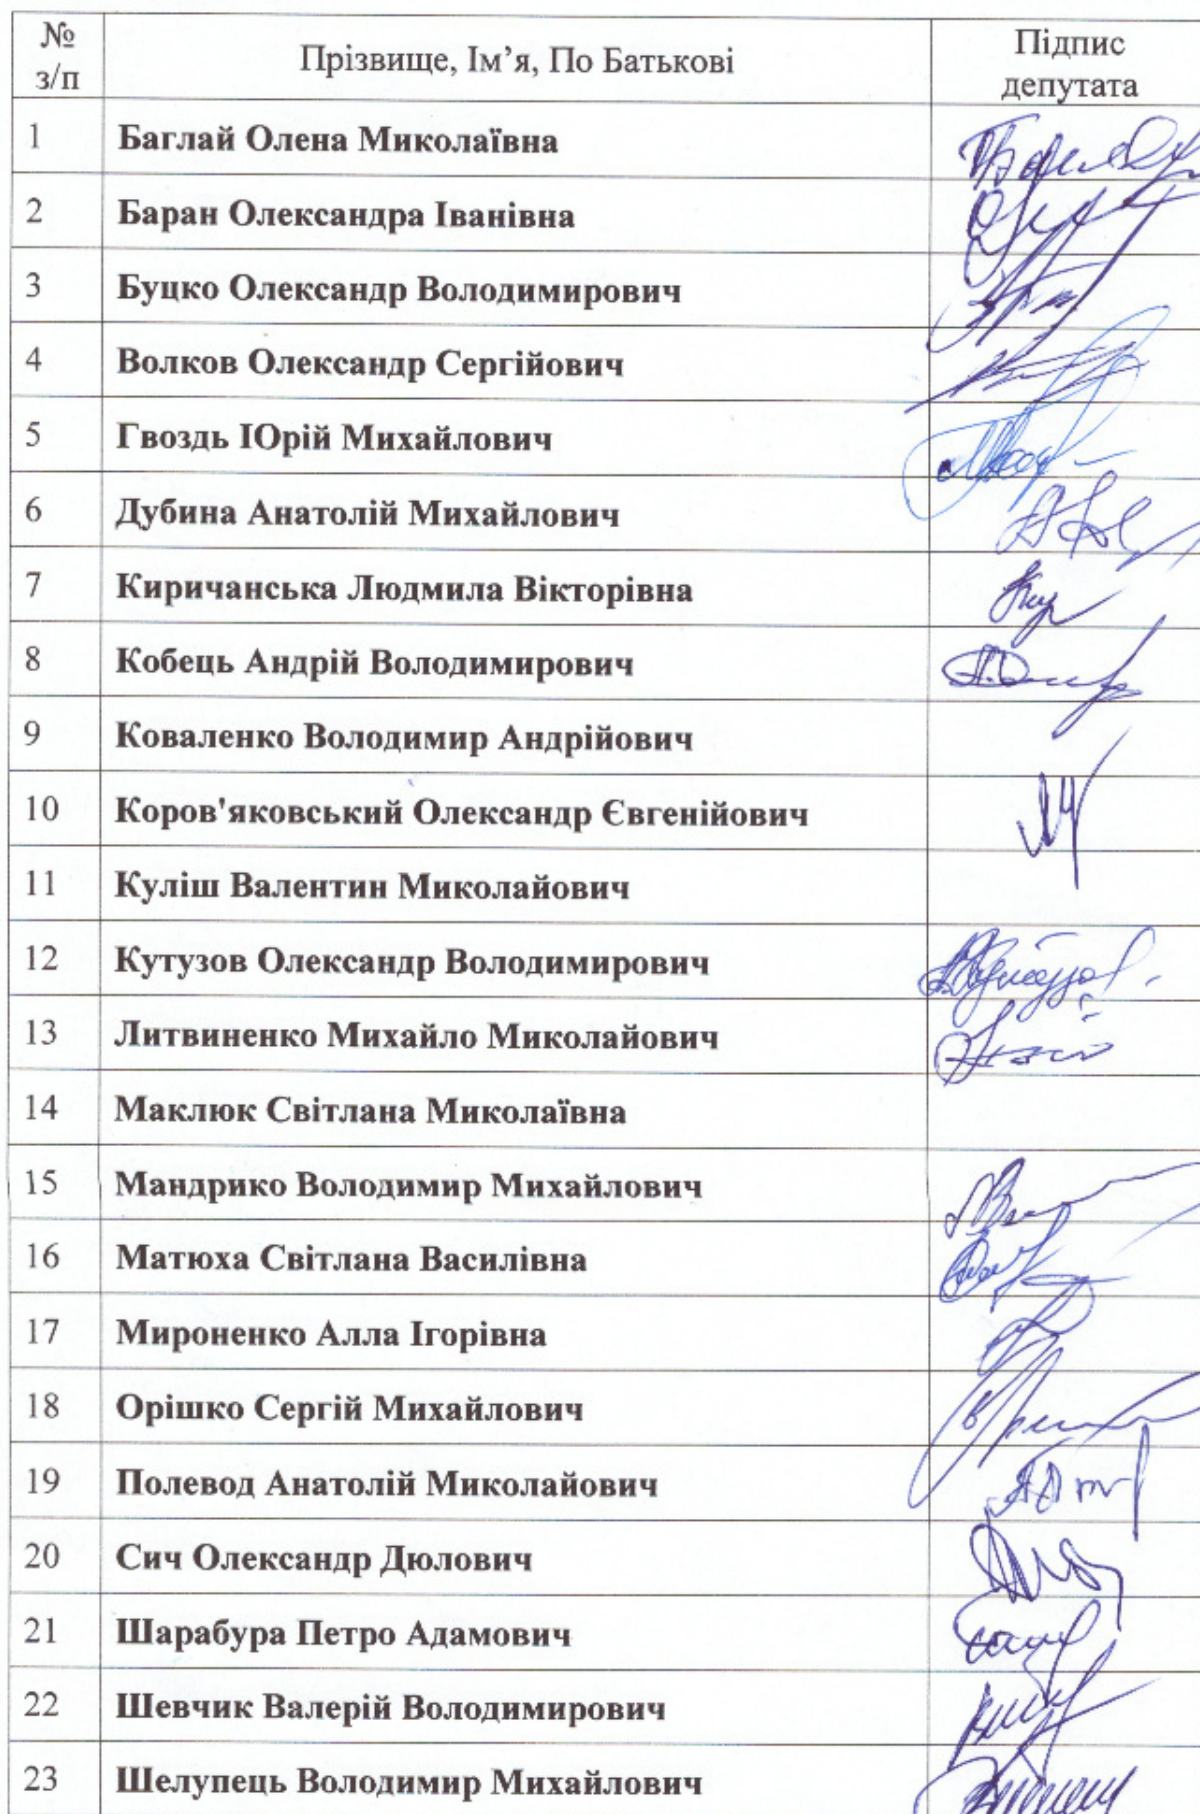 № з/п Прізвище, Ім’я, По Батькові Підпис депутата
1 Баглай Олена Миколаївна
2 Баран Олександра Іванівна
3 Буцко Олександр Володимирович
4 Волков Олександр Сергійович
5 Гвоздь ІОрій Михайлович
6 Дубина Анатолій Михайлович
7 Киричанська Людмила Вікторівна
8 Кобець Андрій Володимирович
9 Коваленко Володимир Андрійович
10 Коров'яковський Олександр Євгенійович
11 Куліш Валентин Миколайович
12 Кутузов Олександр Володимирович
13 Литвиненко Михайло Миколайович
14 Маклюк Світлана Миколаївна
15 Мандрико Володимир Михайлович
16 Матюха Світлана Василівна
17 Мироненко Алла Ігорівна
18 Орішко Сергій Михайлович
19 Полевод Анатолій Миколайович
20 Сич Олександр Дюлович
21 Шарабура Петро Адамович
22 Шевчик Валерій Володимирович
23 Шелупець Володимир Михайлович